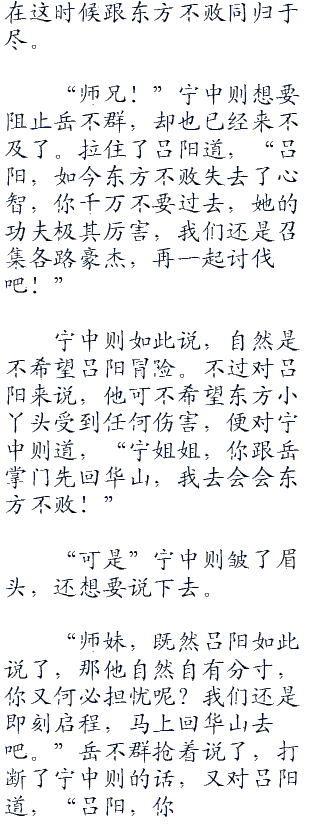 在这时候跟东方不败同归于
尽。
“师兄！”宁中则想要
阻止岳不群，却也已经来不
及了。拉住了吕阳道，“吕
阳，如今东方不败失去了心
智，你千万不要过去，她的
功夫极其厉害，我们还是召
集各路豪杰，再一起讨伐
吧！”
宁中则如此说，自然是
不希望吕阳冒险。不过对吕
阳来说，他可不希望东方小
丫头受到任何伤害，便对宁
中则道，“宁姐姐，你跟岳
掌门先回华山，我去会会东
方不败！”
“可是”宁中则皱了眉
头，还想要说下去。
“师妹，既然吕阳如此
说了，那他自然自有分寸，
你又何必担忧呢？我们还是
即刻启程，马上回华山去
吧。”岳不群抢着说了，打
断了宁中则的话，又对吕阳
道，“吕阳，你